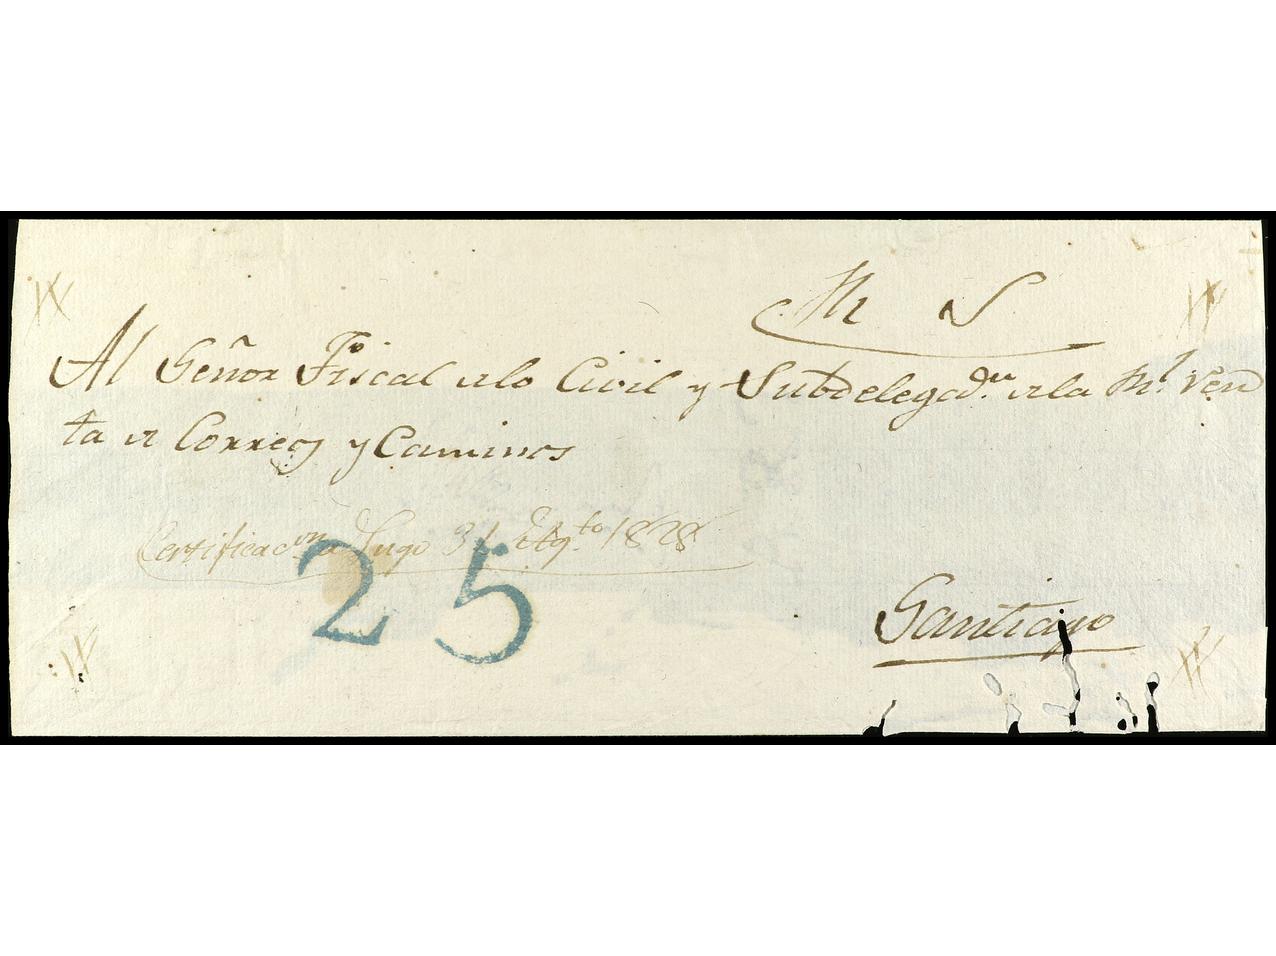 R S
Al Señor Fiscal de lo Civil y Subdelegado. de la Rl. Ren
ta de Correos y Caminos
Certificacion de Lugo 31 de Agto 1828
25
Santiago